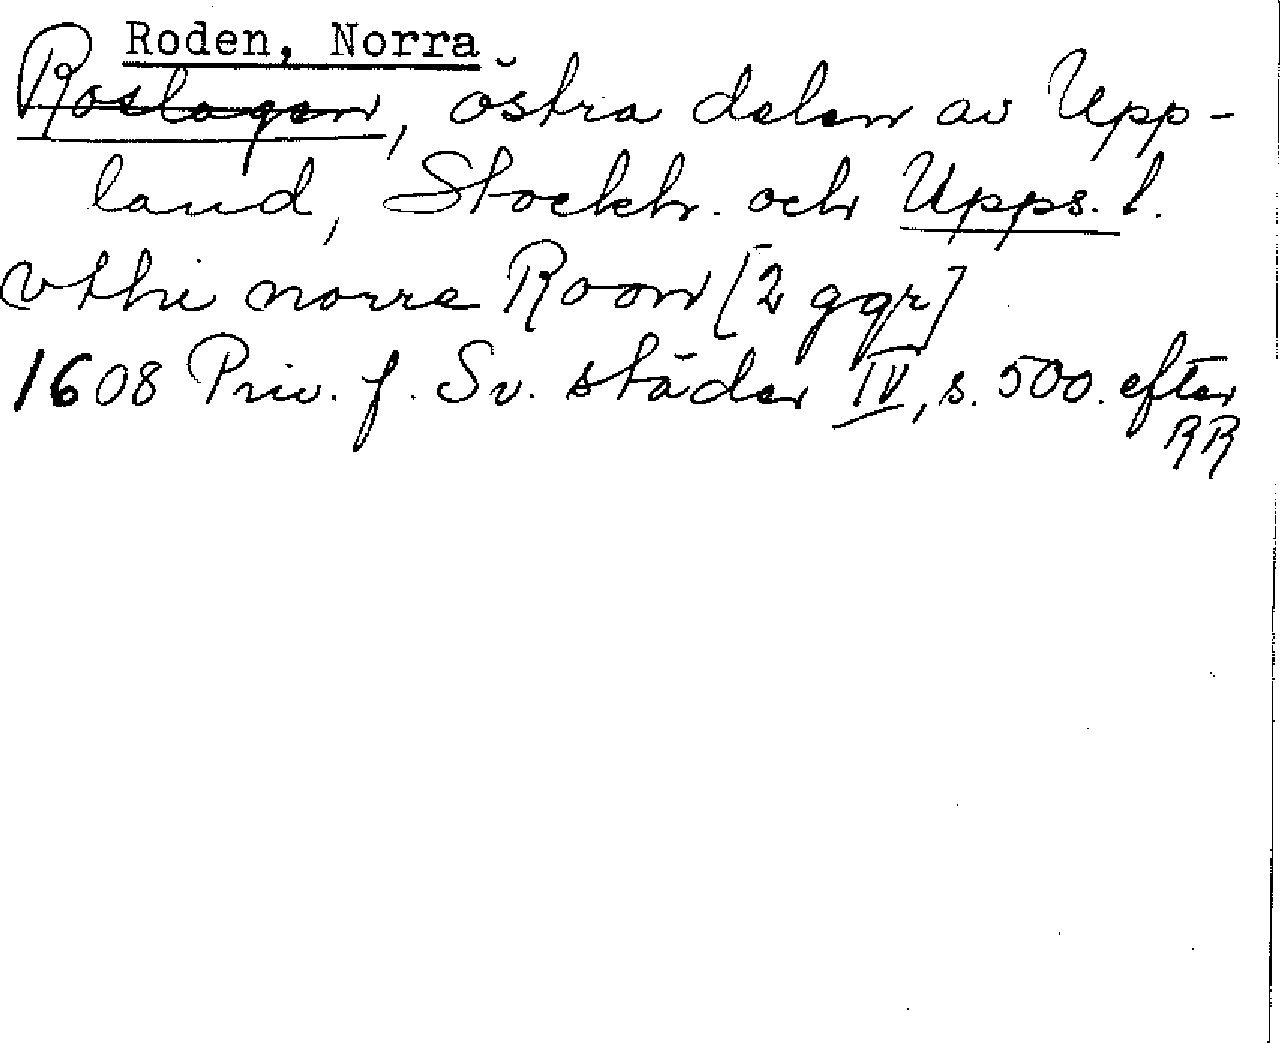 Roden, Norra
Roslagen, östra delen av Upp-
land, Stockh. och Upps. l.
vthi norre Roon [2 ggr]
1608 Priv. f. Sv. städer IV, s. 500. efter
RR